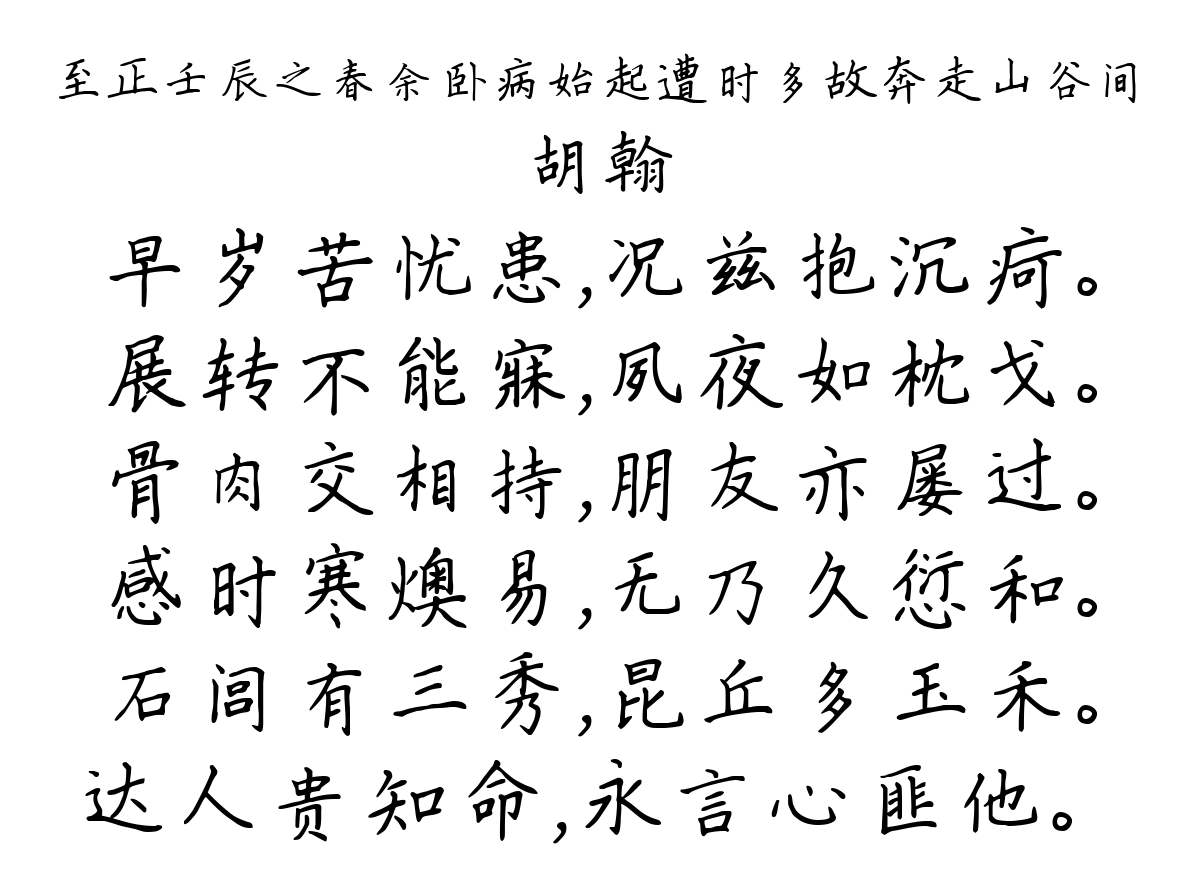 至正壬辰之春余卧病始起遭时多故奔走山谷间
胡翰
早岁苦忧患,况兹抱沉疴。
展转不能寐,夙夜如枕戈。
骨肉交相持,朋友亦屡过。
感时寒燠易,无乃久愆和。
石闾有三秀,昆丘多玉禾。
达人贵知命,永言心匪他。